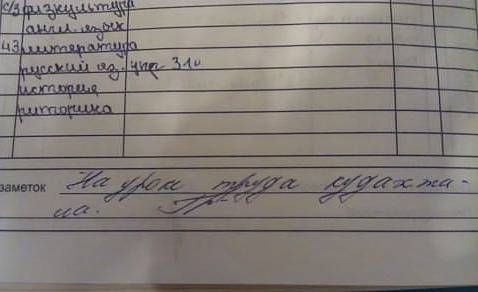 с/з физкультура
англ. язык
43 литература
русский яз. упр 310
история
риторика
заметок На уроке труда кудахта-
ла.